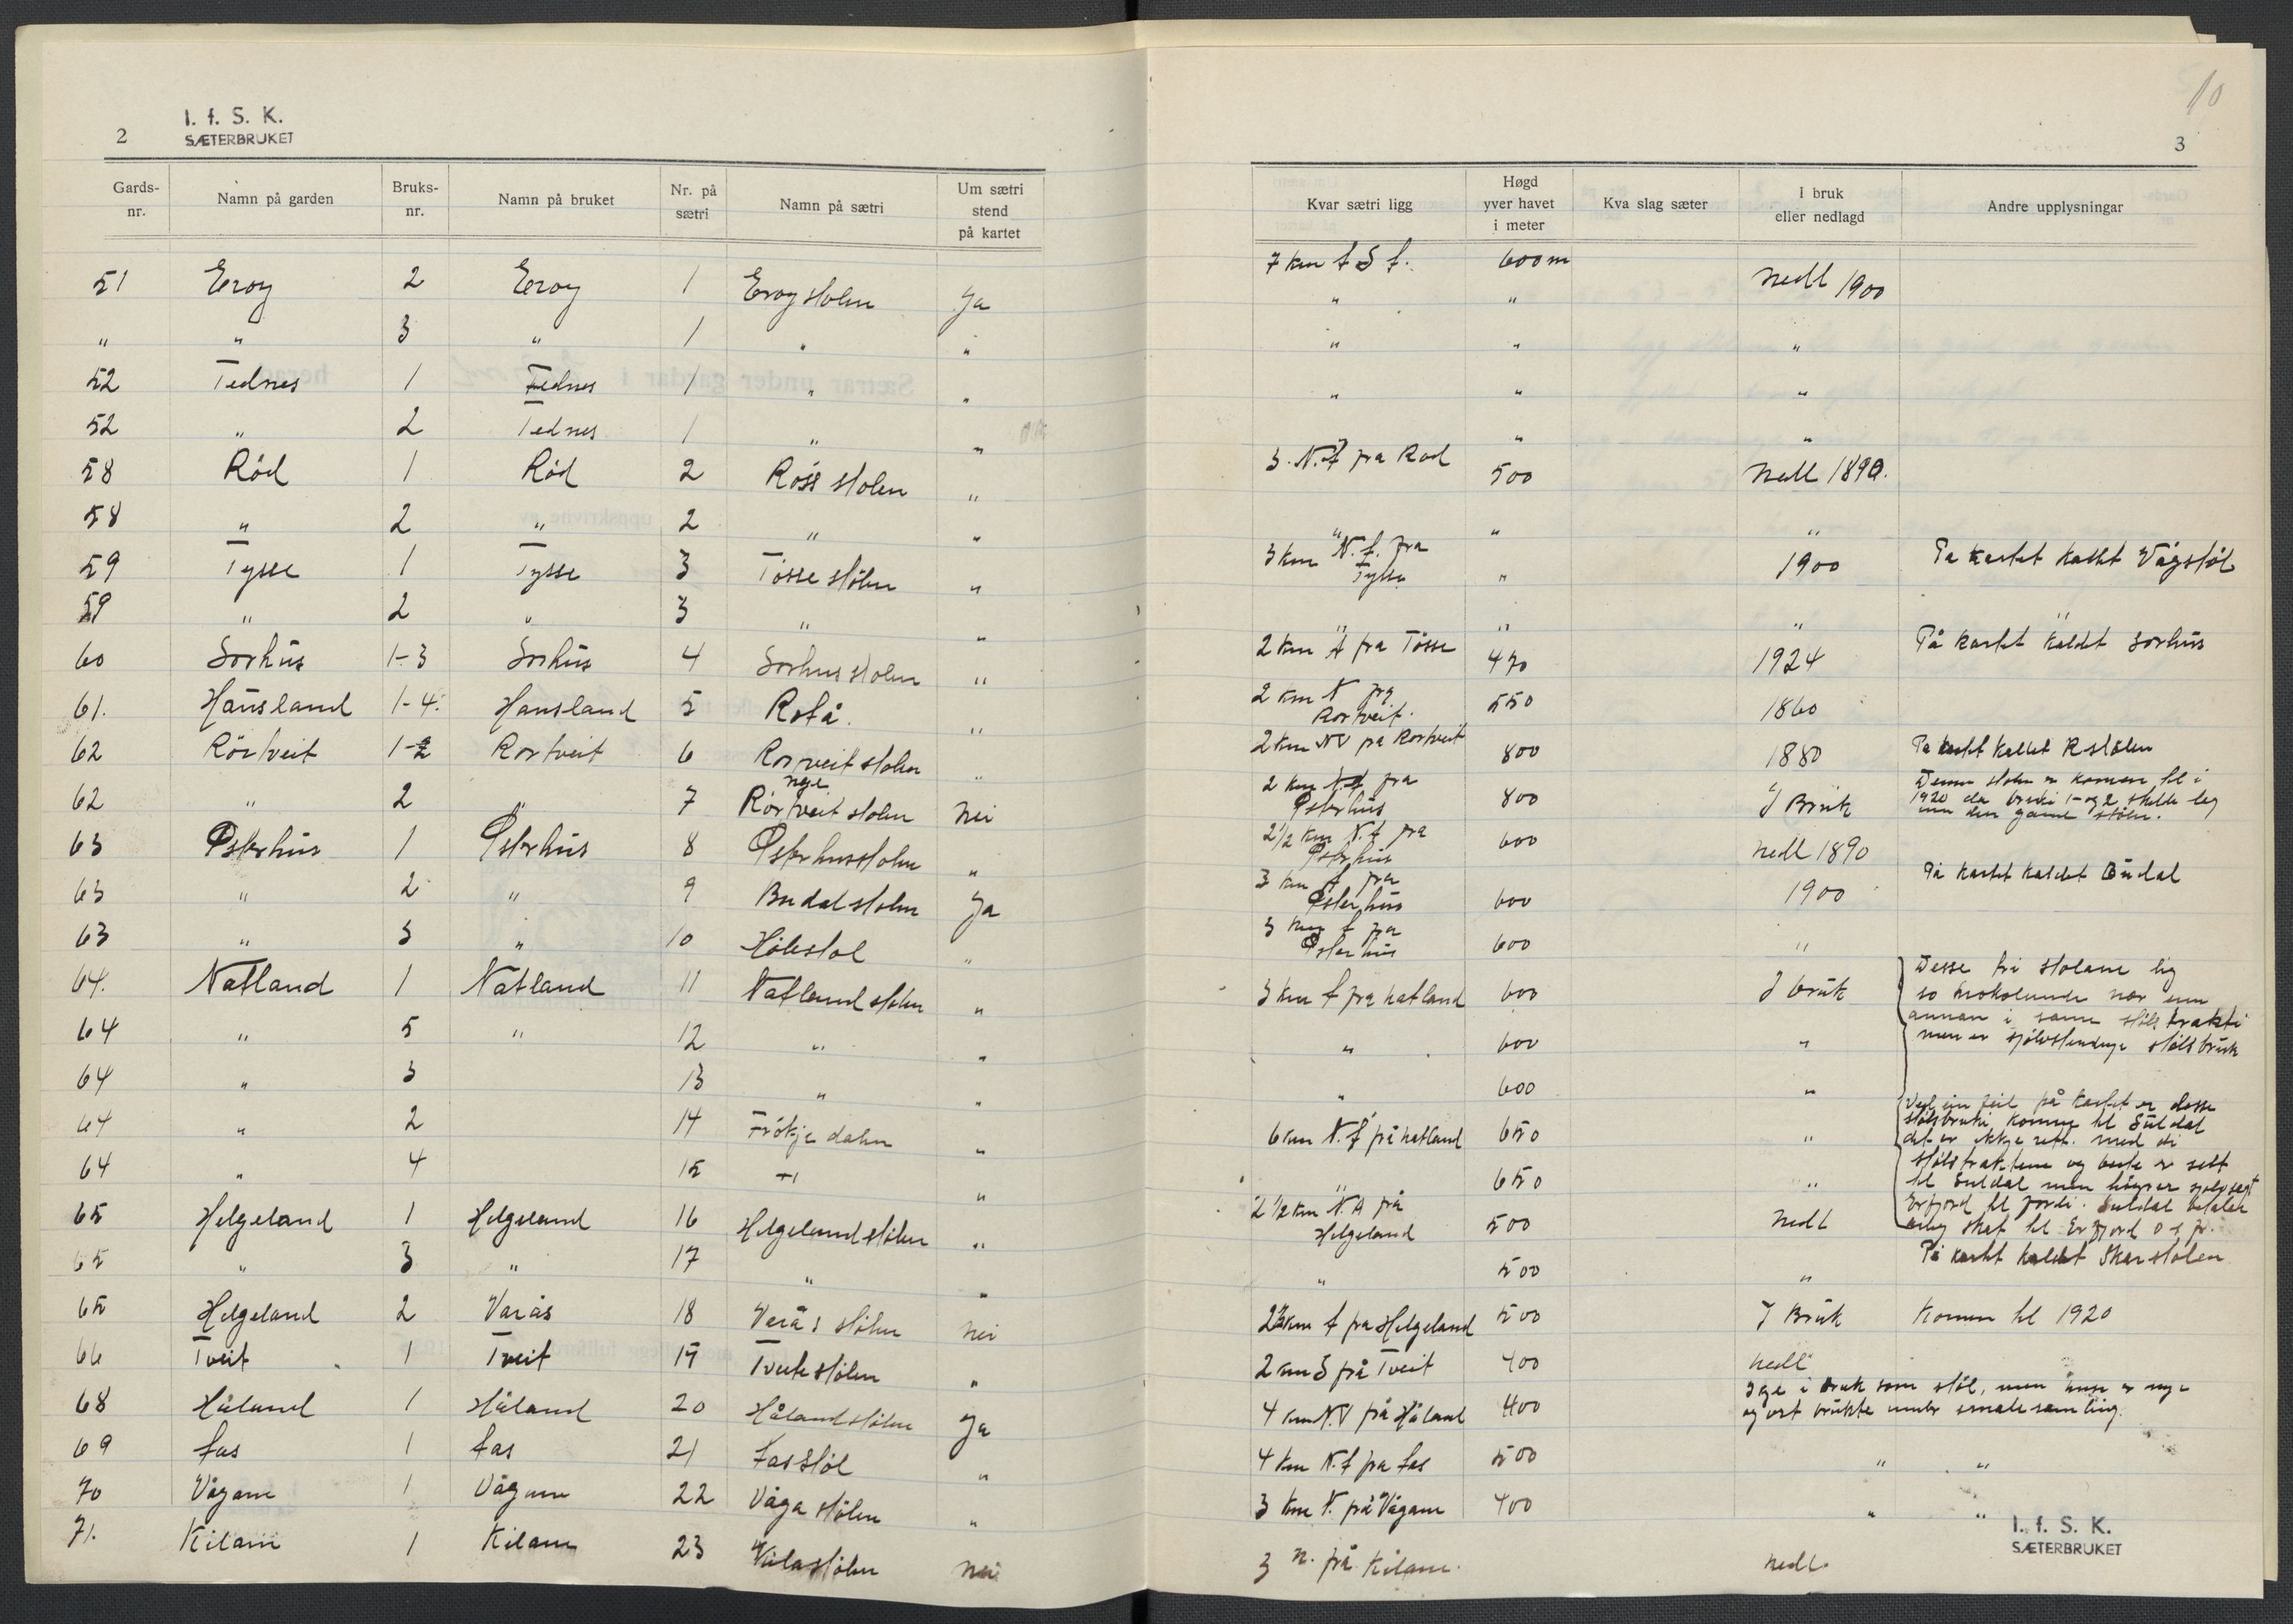 I. f. S. K.
2 SÆTERBRUKET
Gards-nr. Namn på garden Bruks-nr. Namn på bruket Nr. på sætri Namn på sætri Um sætri stend på kartet
51 Eroy 2 Eroy 1 Eroystolen Ja
" " 3 " 1 " "
52 Tednes 1 Tednes 1 " "
52 " 2 Tednes 1 " "
58 Rød 1 Rød 2 Røss stolen "
58 " 2 " 2 " "
59 Tysse 1 Tysse 3 Tösse stölen "
59 " 2 " 3 " "
60 Sorhus 1-3 Sorhus 4 Sorhusstolen "
61. Hausland 1-4. Hausland 5 Rotå. "
62 Rörtveit 1-2 Rortveit 6 Rorveitstolen "
62 " 2 " 7 Rörtveitstolen Nei
63 Østerhus 1 Østerhus 8 Østerhusstolen "
63 " 2 " 9 Budalstolen Ja
63 " 3 " 10 Holestol "
64. Natland 1 Natland 11 Natlandstolen "
64 " 5 " 12 " "
64 " 3 13 " "
64 " 2 14 Frökjedalen "
64 " 4 15 "
65 Helgeland 1 Helgeland 16 Helgelandstølen "
65 " 3 " 17 " "
65 Helgeland 2 Varås 18 Verås stölen Nei
66 Tveit 1 Tveit 19 Tveitestölen "
68 Håland 1 Håland 20 Hålandstölen Ja
69 Fas 1 Fas 21 Fasstöl "
70 Vågane 1 Vågane 22 Våga stölen "
71. Kilane 1 Kilane 23 Kilastölen Nei
10
3
Kvar sætri ligg Høgd yver havet i meter Kva slag sæter I bruk eller nedlagd Andre upplysningar
7 km 600 m
" " nedl 1900
" " "
" " "
" "
3. N. fra Rød 500 Nedl 1890.
" " "
3 km N. fra
Tysse " 1900 På kartet kallet Vågstöl
" " "
2 km fra Tösse 470 1924 På kartet kaldet Sorhus
2 km N fra
Rortveit. 550 1860
2 km NV fra Rortveit 800 1880 På kartet kallet Rstölen
2 km fra
Østerhus 800 I Bruk Denne stolen er komen til i
1920 da bruki 1 og 2 skilde seg
um den gamle stölen.
2 1/2 km N. fra
Østerhus 600 nedl 1890
3 km fra
Østerhus 600 1900 På kartet kaldet Budal
3 km fra
Østerhus 600 "
3 km fra Natland 600 I bruk Desse tri stolane lig
so nær um
annan i same støls trakti
" 600 " men er sjølvstendige stölsbruk
" 600 "
6 km N. frå Natland 650 " Ved ein feil på kartet er desse
stölsbruki komne til Suldal
det er ikkje rett. med di
" 650 " stölstraktene og beite er selt
til Suldal men
Erfjord til jordi. Suldal betaler
skat til Erfjord o s fr.
2 1/2 km N. frå
Helgeland 500 Nedl
" 500 " På kartet kaldet Skarstölen
2 km fra Helgeland 500 I Bruk Komen til 1920
2 km S frå Tveit 400 nedl
4 km NV frå Håland 400 i bruk som stöl, men er
og brukte under smalesamling.
4 km N. fra Fas 500 " "
3 km N. frå Vågane 400 " "
3 N. frå Kilane. nedl.
I. f. S. K.
SÆTERBRUKET